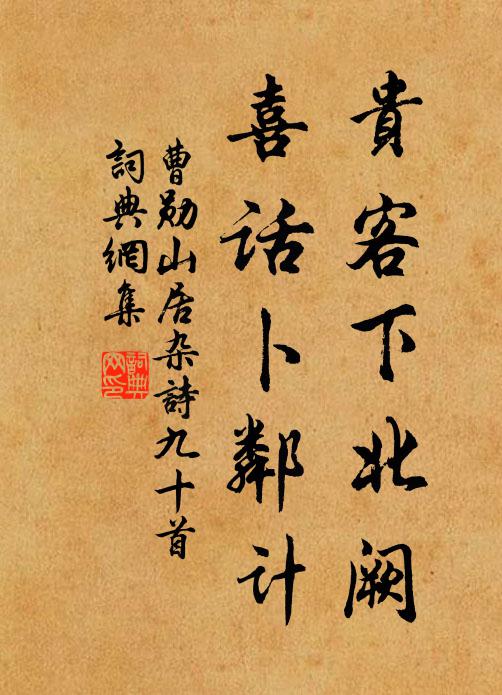 貴客下北阙
喜话卜鄰计
曹勋山居杂詩九十首
詞典網集
詞典網印